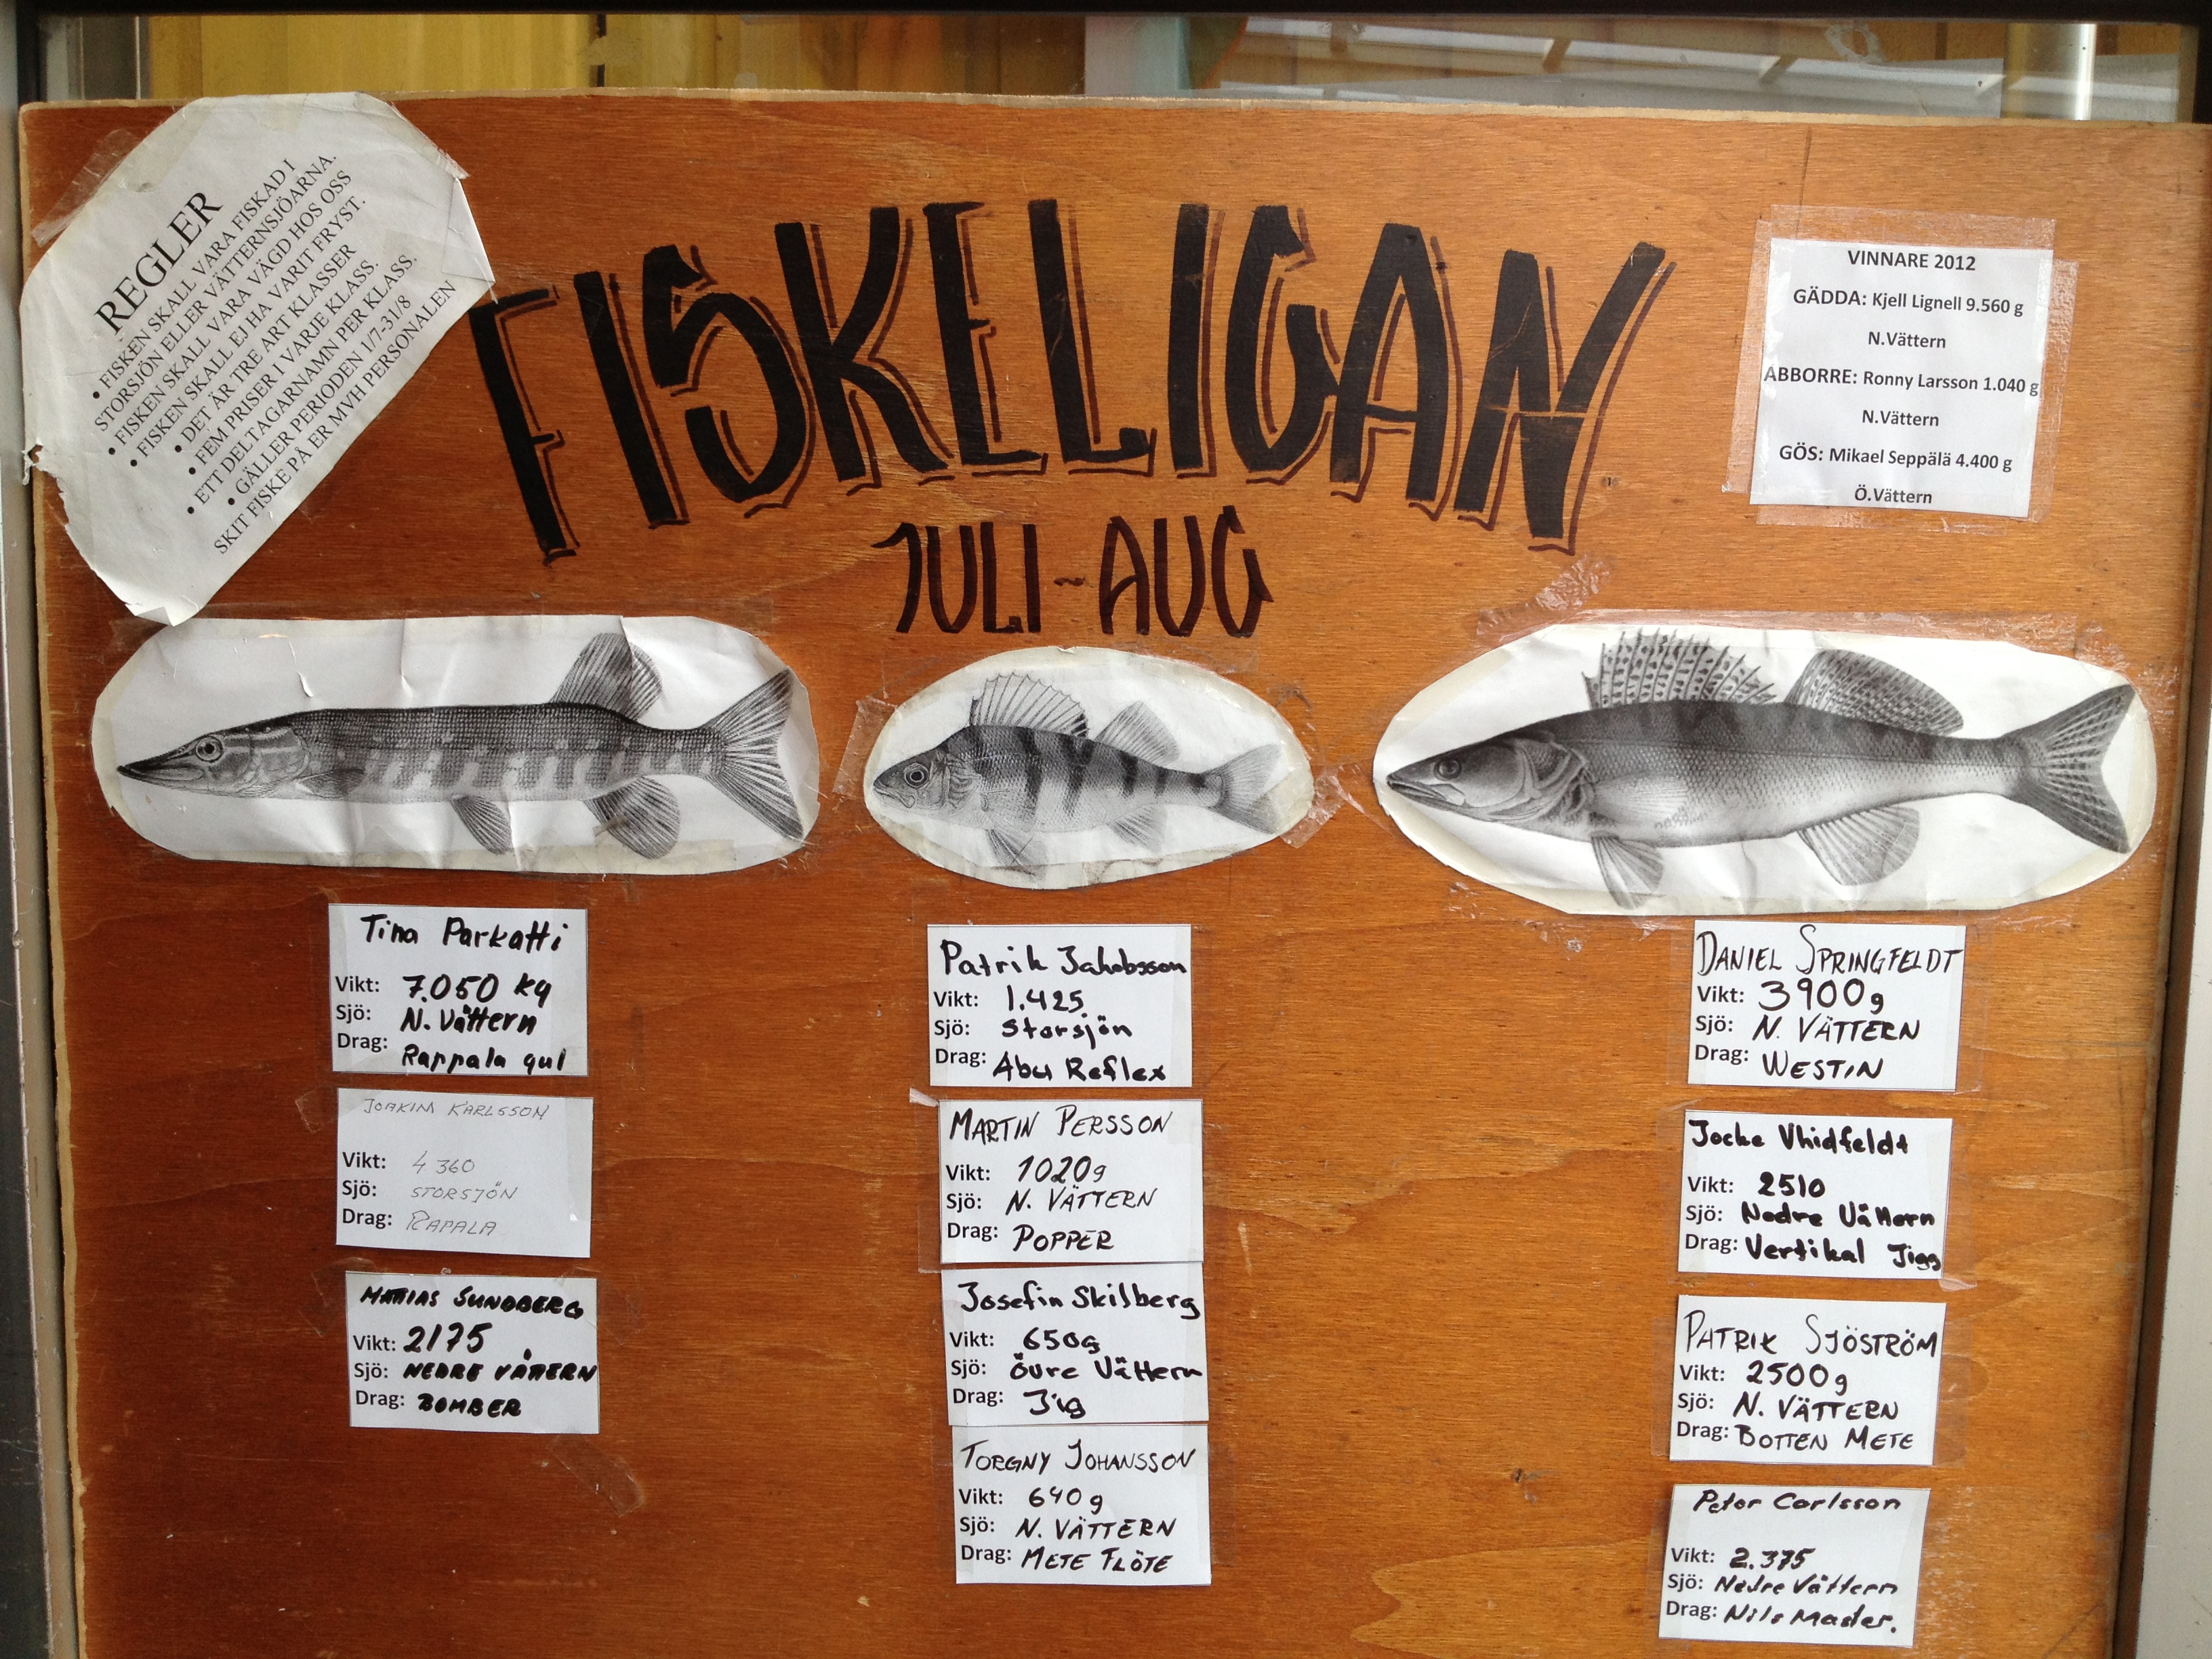 REGLER
• FISKEN SKALL VARA FISKAD I
STORSJÖN ELLER VÄTTERNSJÖARNA.
• FISKEN SKALL VARA VÄGD HOS OSS
• FISKEN SKALL EJ HA VARIT FRYST.
• DET ÄR TRE ART KLASSER
• FEM PRISER I VARJE KLASS.
• ETT DELTAGARNAMN PER KLASS.
• GÄLLER PERIODEN 1/7-31/8
SKIT FISKE PÅ ER MVH PERSONALEN
FISKELIGAN
JULI-AUG
VINNARE 2012
GÄDDA: Kjell Lignell 9.560 g
N.Vättern
ABBORRE: Ronny Larsson 1.040 g
N.Vättern
GÖS: Mikael Seppälä 4.400 g
Ö.Vättern
Tina Parkatti
Vikt: 7.050 kg
Sjö: N. Vättern
Drag: Rappala gul
JOAKIM KARLSSON
Vikt: 4 360
Sjö: STORSJÖN
Drag: RAPALA
MATTIAS SUNDBERG
Vikt: 2175
Sjö: NEDRE VÄTTERN
Drag: BOMBER
Patrik Jakobsson
Vikt: 1.425
Sjö: Storsjön
Drag: Abu Reflex
MARTIN PERSSON
Vikt: 1020g
Sjö: N. VÄTTERN
Drag: POPPER
Josefin Skilberg
Vikt: 650g
Sjö: Övre Vättern
Drag: Jig
TORGNY JOHANSSON
Vikt: 640 g
Sjö: N. VÄTTERN
Drag: METE FLÖTE
DANIEL SPRINGFELDT
Vikt: 3900g
Sjö: N. VÄTTERN
Drag: WESTIN
Jocke Vhidfeldt
Vikt: 2510
Sjö: Nedre Vättern
Drag: Vertikal Jigg
PATRIK SJÖSTRÖM
Vikt: 2500g
Sjö: N. VÄTTERN
Drag: BOTTEN METE
Peter Carlsson
Vikt: 2.375
Sjö: Nedre Vättern
Drag: Nils Master.